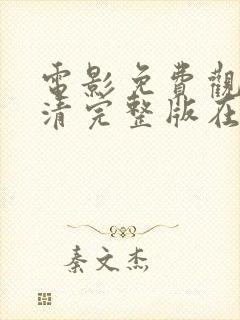 電影免費觀
清完整版在
秦文杰